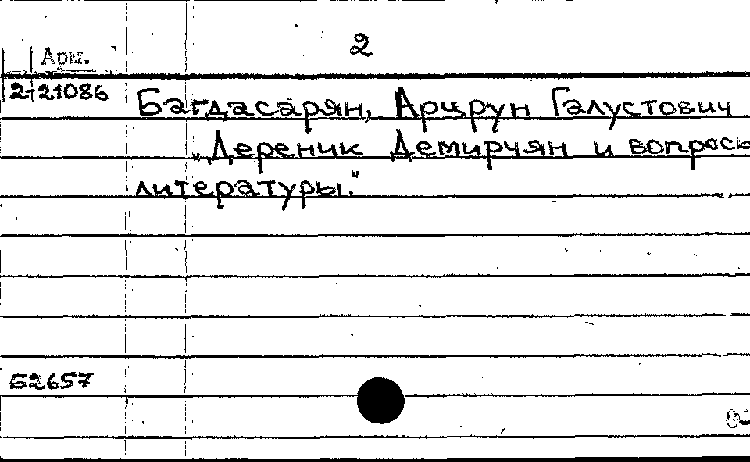 2
Арм.
2-21086
Багдасарян, Арцрун Галустович
„Дереник Демирчян и вопросы
литературы."
Б2657